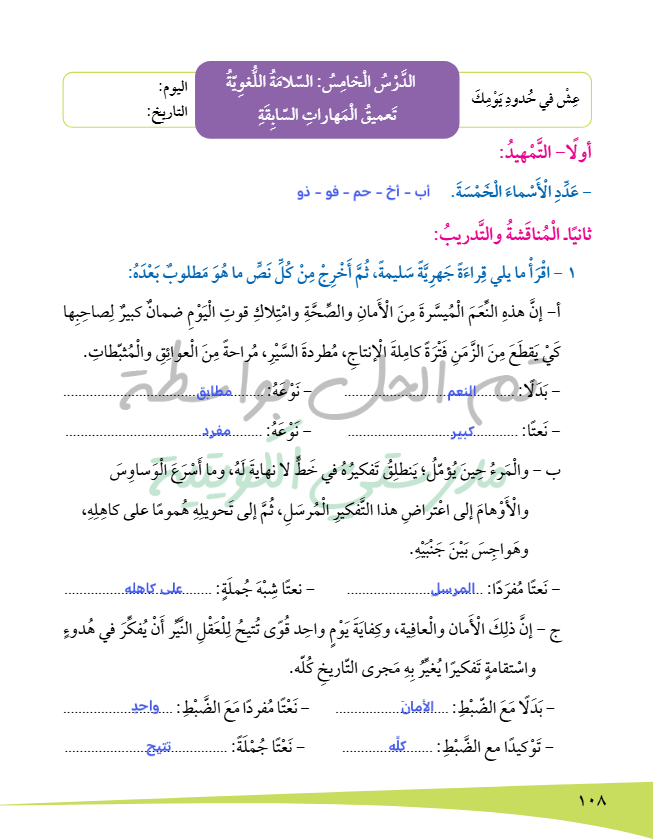 عِشْ في حُدودِ يَوْمِكَ
الدَّرْسُ الْخامِسُ: السّلامَةُ اللُّغويّةُ
تَعميقُ الْمَهاراتِ السّابِقَةِ
اليوم:
التاريخ:
أولًا– التَّمْهيدُ:
– عَدِّدِ الْأَسْماءَ الْخَمْسَةَ. أب - أخ - حم - فو - ذو
ثانيًا۔ الْمُناقَشةُ والتَّدريبُ:
١ – اقْرَأْ ما يلي قِراءَةً جَهرِيَّةً سَليمةً، ثُمَّ أَخْرِجْ مِنْ كُلِّ نَصٍّ ما هُوَ مَطلوبٌ بَعْدَهُ:
أ– إنَّ هذهِ النِّعَمَ الْمُيسَّرةَ مِنَ الْأَمانِ والصِّحَّةِ وامْتِلاكِ قوتِ الْيَوْمِ ضمانٌ كبيرٌ لِصاحِبِها
كَيْ يَقطَعَ مِنَ الزَّمَنِ فَتْرَةً كامِلةَ الْإنتاجِ، مُطردةَ السَّيْرِ، مُراحةً مِنَ العوائِقِ والْمُثبِّطاتِ.
– بَدَلًا: النعم – نَوْعَهُ: مطابق
– نَعتًا: كبير – نَوْعَهُ: مفرد
تم الحل بواسطة
مدرستي الكويتية
ب – والْمَرءُ حِينَ يُؤمِّلُ؛ يَنطلِقُ تَفكيرُهُ في خَطٍّ لا نهايةَ لَهُ، وما أَسْرَعَ الْوَساوِسَ
والْأَوْهامَ إلى اعْتراضِ هذا التَّفكيرِ الْمُرسَلِ، ثُمَّ إلى تَحويلِهِ هُمومًا على كاهِلِهِ،
وهَواجِسَ بَيْنَ جَنْبَيْهِ.
– نَعتًا مُفرَدًا: المرسل – نعتًا شِبْهَ جُملَةٍ: على كاهله
ج – إنَّ ذلِكَ الْأَمان والْعافِية، وكِفايَةَ يَوْمٍ واحِد قُوًى تُتيحُ لِلْعَقْلِ النَّيِّرِ أَنْ يُفكِّرَ في هُدوءٍ
واسْتقامةٍ تَفكيرًا يُغيِّرُ بِهِ مَجرى التّاريخِ كُلّه.
– بَدَلًا مَعَ الضّبْطِ: الأمانَ – نَعْتًا مُفردًا مَعَ الضَّبْطِ: واحدٍ
– تَوْكيدًا مع الضَّبْطِ: كلِّه – نَعْتًا جُمْلَةً: تتيح
١٠٨